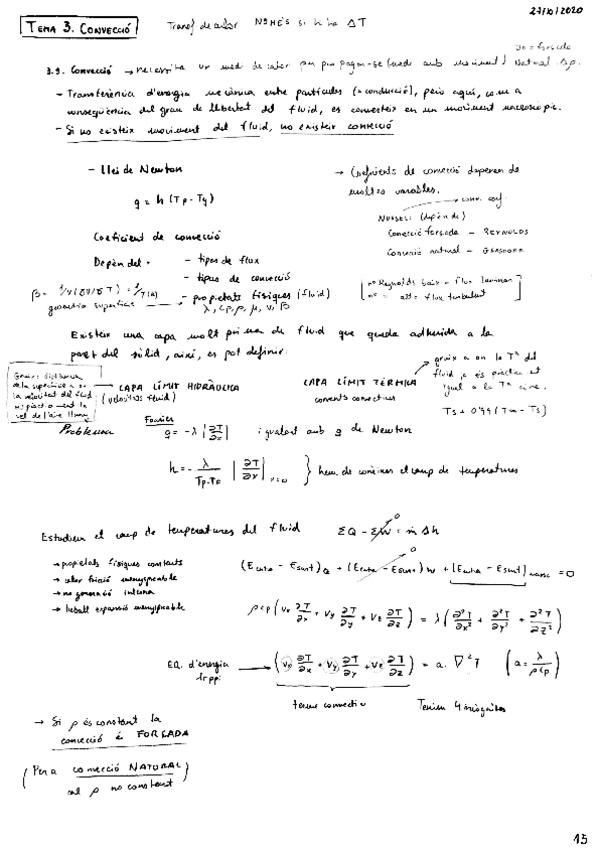 27/10/2020
TEMA 3. CONVECCIÓ
Transf de calor NOMÉS si hi ha ΔT
3.1. Convecció → necessita un medi de calor per propagar-se (vede amb moviment) Natural Δρ.
- Transferència d'energia mecànica entre partícules (= conducció), però aquí, com a
conseqüència del grau de llibertat del fluid, es converteix en un moviment macroscòpic.
- Si no existeix moviment del fluid, no existeix convecció
- Llei de Newton
q = h (Tp - Tf)
→ Coeficients de convecció depenen de
moltes variables.
→ conv. coef.
NUSSELT (depèn de)
Convecció forçada - REYNOLDS
Convecció natural - GRASHOFF
nº Reynolds baix = flux laminar
nº = alt = flux turbulent
Coeficient de convecció
Depèn del: - tipus de flux
- tipus de convecció
- propietats físiques (fluid)
λ, cp, ρ, μ, ν, β
geometria superfície
Existeix una capa molt prima de fluid que queda adherida a la
part del sòlid, així, es pot definir:
→ CAPA LÍMIT HIDRÀULICA
(velocitat fluid)
CAPA LÍMIT TÈRMICA
corrents convectius
→ gruix a on la Tª del
fluid ja és pràcticament
igual a la Tª aire.
Ts + 0'99 (T∞ - Ts)
Problema
Fourier
q = -λ |∂T/∂x| igualant amb q de Newton
h = - λ/(Tp-TF) |∂T/∂x| x=0 } hem de conèixer el camp de temperatures
Estudiem el camp de temperatures del fluid ΣQ - ΣW = ṁ Δh
0
→ propietats físiques constants
→ calor fricció menyspreable
→ no generació interna
→ treball expansió menyspreable
(Eentra - Esurt)Q + (Eentra - Esurt)W + (Eentra - Esurt)massa = 0
0
ρ cp (Vx ∂T/∂x + Vy ∂T/∂y + Vz ∂T/∂z) = λ (∂²T/∂x² + ∂²T/∂y² + ∂²T/∂z²)
EQ. d'energia
1r ppi.
→ (Vx ∂T/∂x + Vy ∂T/∂y + Vz ∂T/∂z) = a · ∇²T (a = λ/ρcp)
terme convectiu
Tenim 4 incògnites
→ Si ρ és constant la
convecció és FORÇADA
(Per a convecció NATURAL)
cal ρ no constant
15